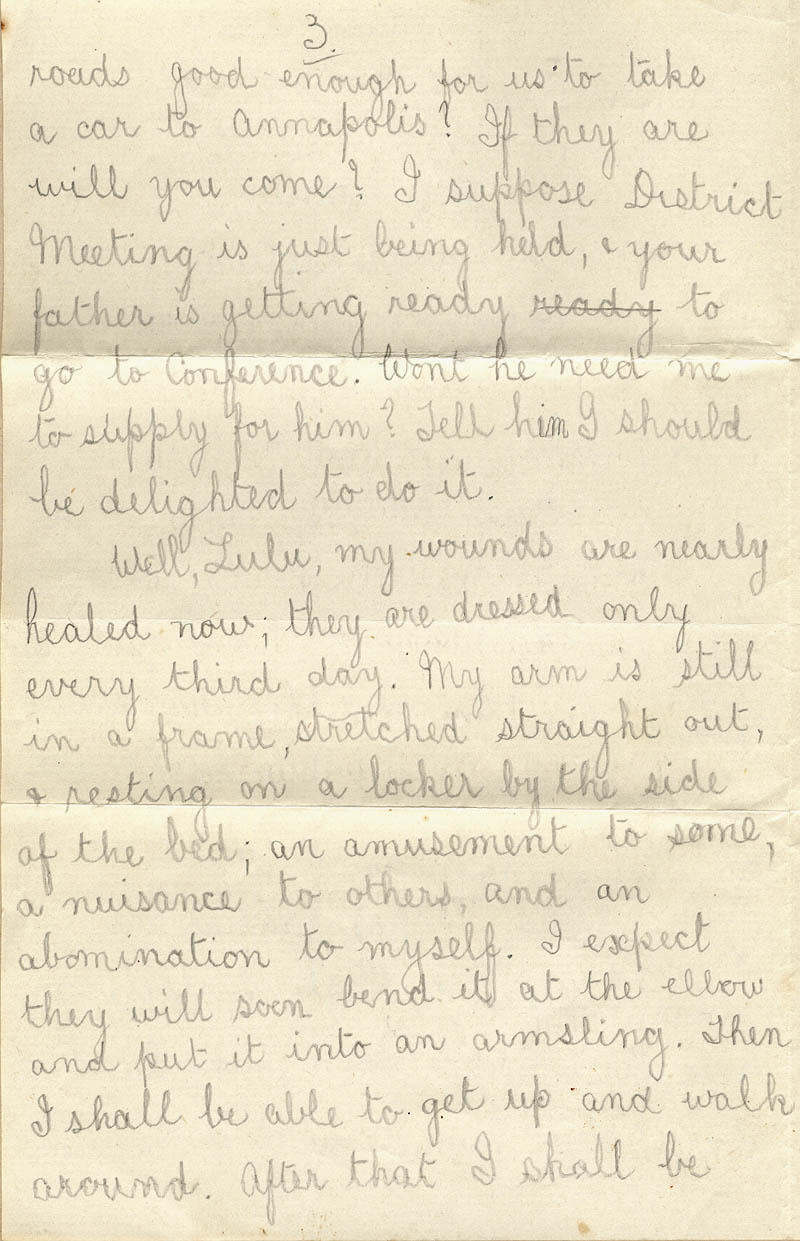 3.
roads good enough for us to take
a car to Annapolis? If they are
will you come? I suppose District
Meeting is just being held, & your
father is getting ready ready to
go to Conference. Wont he need me
to supply for him? Tell him I should
be delighted to do it.
Well, Lulu, my wounds are nearly
healed now; they are dressed only
every third day. My arm is still
in a frame, stretched straight out,
& resting on a locker by the side
of the bed; an amusement to some,
a nuisance to others, and an
abomination to myself. I expect
they will soon bend it at the elbow
and put it into an armsling. Then
I shall be able to get up and walk
around. After that I shall be